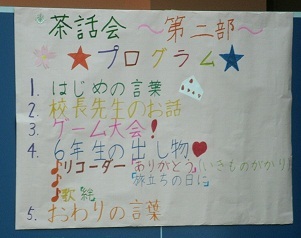 茶話会 〜第二部〜
★プログラム★
1. はじめの言葉
2. 校長先生のお話
3. ゲーム大会!
4. 6年生の出し物♥
♪リコーダー「ありがとう」(いきものがかり)
「旅立ちの日に」
♪歌
5. おわりの言葉